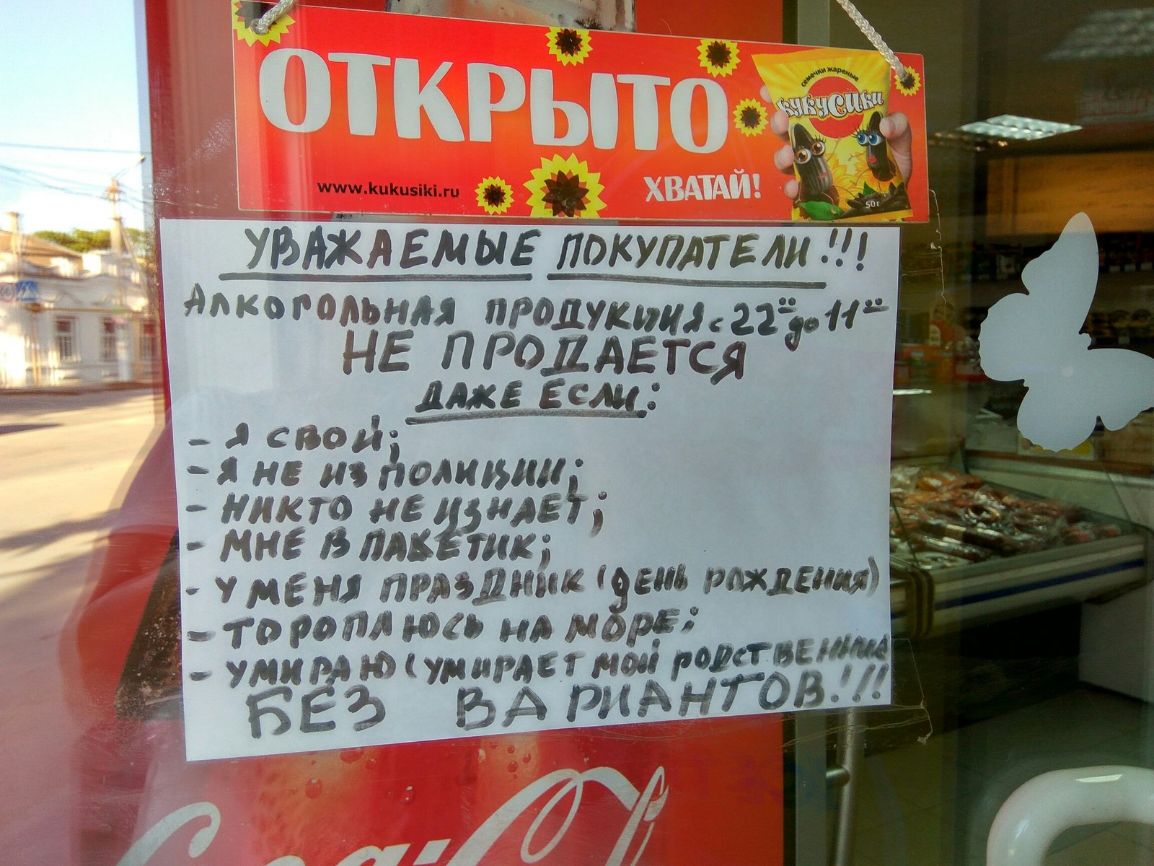 ОТКРЫТО
www.kukusiki.ru
ХВАТАЙ!
семечки жареные
КУКУСИКИ
50г
УВАЖАЕМЫЕ ПОКУПАТЕЛИ!!!
АЛКОГОЛЬНАЯ ПРОДУКЦИЯ с 22⁰⁰ до 11⁰⁰
НЕ ПРОДАЕТСЯ
ДАЖЕ ЕСЛИ:
- Я СВОЙ;
- Я НЕ ИЗ ПОЛИЦИИ;
- НИКТО НЕ УЗНАЕТ;
- МНЕ В ПАКЕТИК;
- У МЕНЯ ПРАЗДНИК (ДЕНЬ РОЖДЕНИЯ)
- ТОРОПЛЮСЬ НА МОРЕ;
- УМИРАЮ (УМИРАЕТ МОЙ РОДСТВЕННИК
БЕЗ ВАРИАНТОВ!!!
Coca-Col